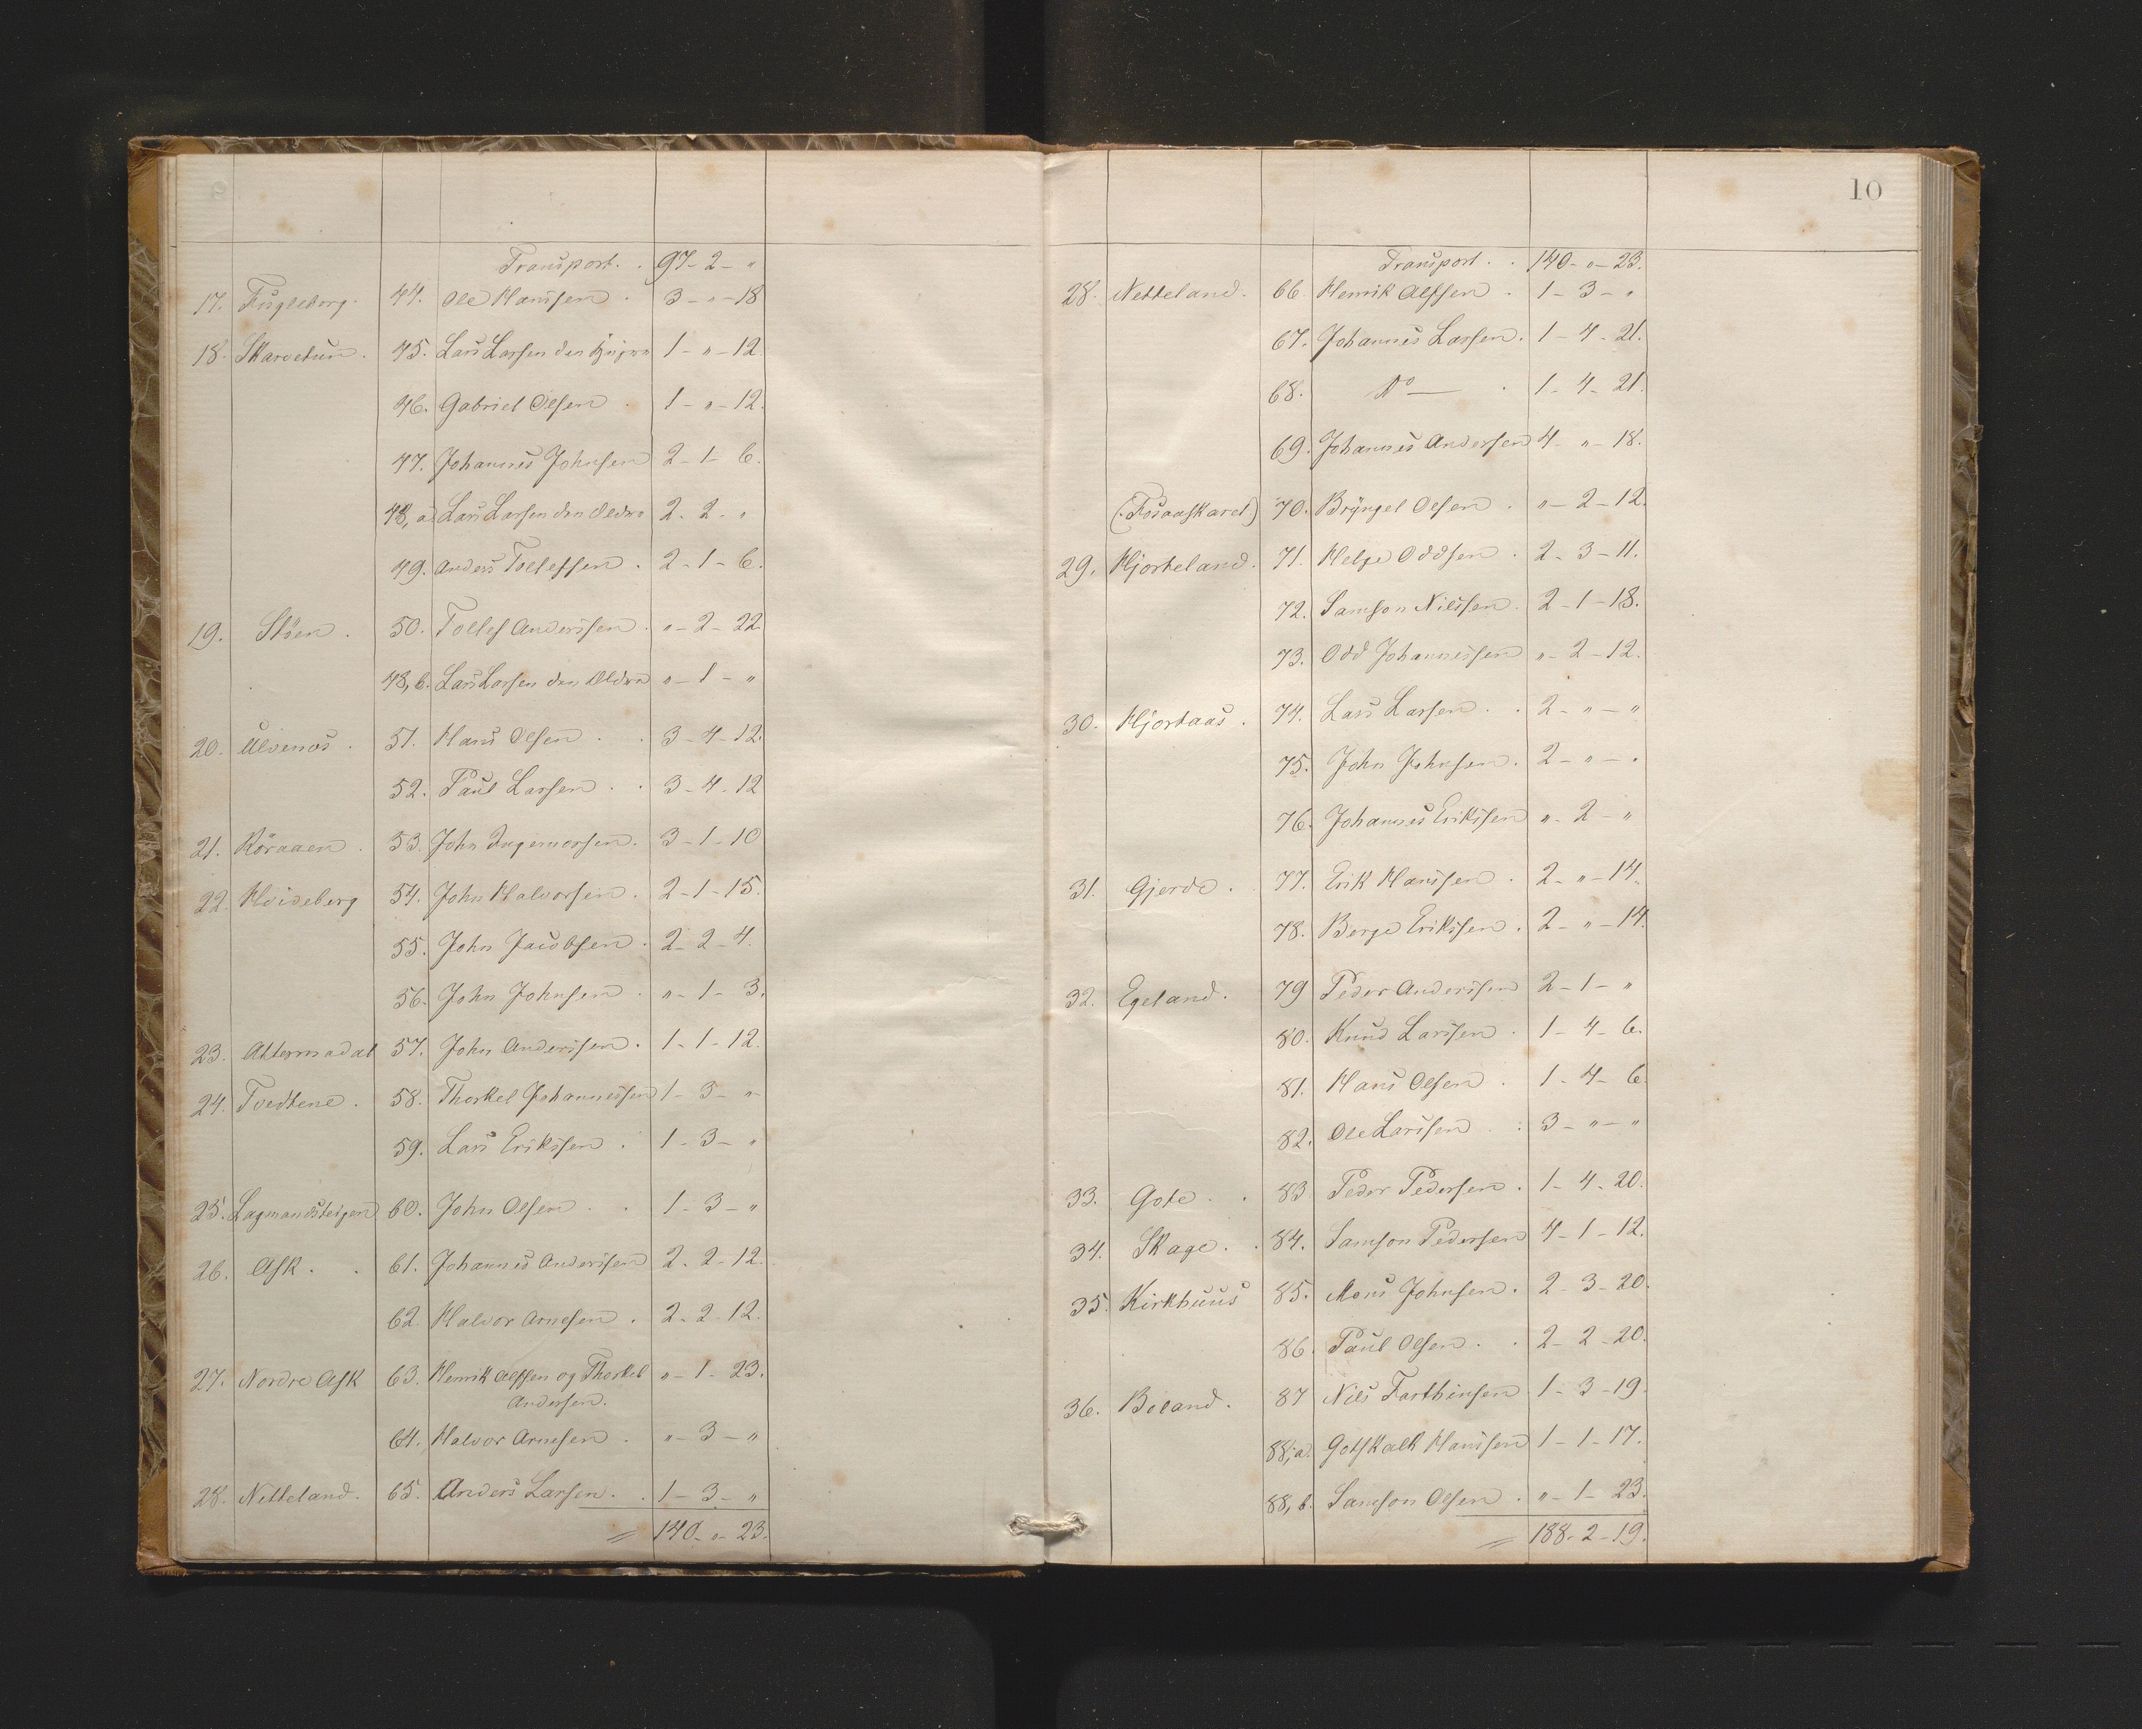 Transport. . 97 - 2 - "
17. Fugleberg. 44. Ole Hanssen . 3 - " - 18
18. Skarvetun. 45. Lars Larsen den Yngre 1 - " - 12.
46. Gabriel Olsen . 1 - " - 12.
47. Johannes Johnsen 2 - 1 - 6.
48, a. Lars Larsen den Eldre 2 - 2 - "
49. Anders Tollefsen . 2 - 1 - 6.
19. Stöen . 50. Tollef Anderssen . " - 2 - 22
48, b. Lars Larsen den Eldre " - 1 - "
20. Ulvenos . 51. Hans Olsen . . 3 - 4 - 12.
52. Paul Larsen . . 3 - 4 - 12
21. Röraaen . 53. John Ingemorsen. 3 - 1 - 10
22. Hvideberg 54. John Halvorsen . 2 - 1 - 15.
55. John Jacobsen . 2 - 2 - 4.
56. John Johnsen . " - 1 - 3.
23. Attermadal 57. John Anderssen . 1 - 1 - 12.
24. Tvedtene . 58. Thorkel Johannessen 1 - 3 - "
59. Lars Erikssen . 1 - 3 - "
25. Lagmandsteigen 60. John Olsen . . 1 - 3 - "
26. Ask . . 61. Johannes Anderssen 2 - 2 - 12.
62. Halvor Arnesen . 2 - 2 - 12.
27. Nordre Ask 63. Henrik Olssen og Thorkel " - 1 - 23.
Andersen.
64. Halvor Arnesen . " - 3 - "
28. Netteland. 65. Anders Larsen. . 1 - 3 - "
= 140 - " - 23.
10
Transport . . 140 - " - 23.
28. Netteland. 66. Henrik Olssen . 1 - 3 - "
67. Johannes Larsen. 1 - 4 - 21.
68. Do — . 1 - 4 - 21.
69. Johannes Andersen 4 - " - 18.
(Fosaaskaret.) 70. Bryngel Olsen . " - 2 - 12.
29. Hjorteland. 71. Helge Oddsen . 2 - 3 - 11.
72. Samson Nilssen . 2 - 1 - 18.
73. Odd Johannessen " - 2 - 12.
30. Hjortaas . 74. Lars Larsen . . 2 - " - "
75. John Johnsen . 2 - " - "
76. Johannes Erikssen " - 2 - "
31. Gjerde . 77. Erik Hanssen . 2 - " - 14.
78. Berge Erikssen . 2 - " - 14.
32. Egeland. 79 Peder Anderssen 2 - 1 - "
80. Knud Larssen . 1 - 4 - 6.
81. Hans Olsen . 1 - 4 - 6.
82. Ole Larssen . . 3 - " - "
33. Gote . . 83 Peder Pedersen . 1 - 4 - 20.
34. Skage . . 84. Samson Pedersen 4 - 1 - 12.
35. Kirkhuus 85. Mons Johnsen . 2 - 3 - 20.
86. Paul Olsen . . 2 - 2 - 20.
36. Boland. 87 Nils Torthinsen 1 - 3 - 19.
88, a. Gotskalk Hanssen 1 - 1 - 17.
88, b. Samson Olsen . " - 1 - 23.
= 188 - 2 - 19.